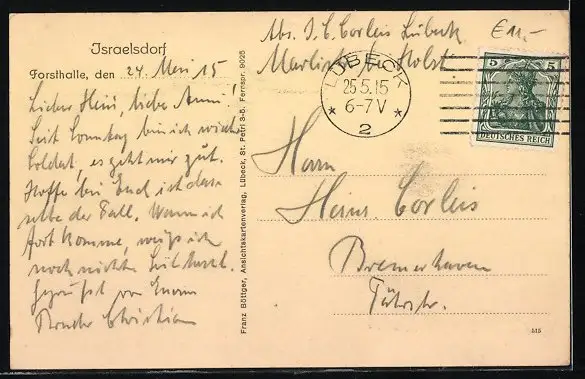 Israelsdorf
Forsthalle, den 24. Mai 15
Lieber Hein, liebe Anni!
Seit Sonntag bin ich wieder
Soldat, es geht mir gut.
Hoffe bei Euch ist das-
selbe der Fall. Wann ich
fort komme, weiß ich
noch nicht.
Gegrüßt von Eurem
Bruder Christian
Franz Böttger, Ansichtskartenverlag, Lübeck, St. Petri 3-5. Fernspr. 9025
Abs. J. C. Corleis Lübeck
€11,-
LÜBECK
25.5.15
6-7V
2
5 5
DEUTSCHES REICH
Herrn
Heinr Corleis
Bremerhaven
Fährstr.
515